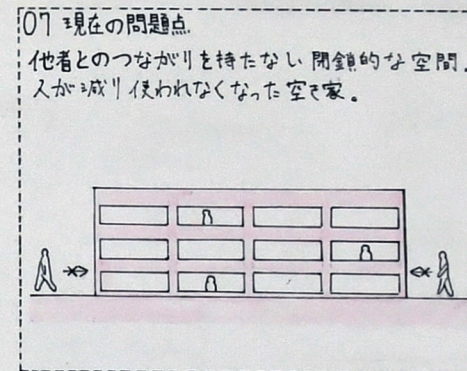 07 現在の問題点
他者とのつながりを持たない閉鎖的な空間。
人が減り使われなくなった空き家。